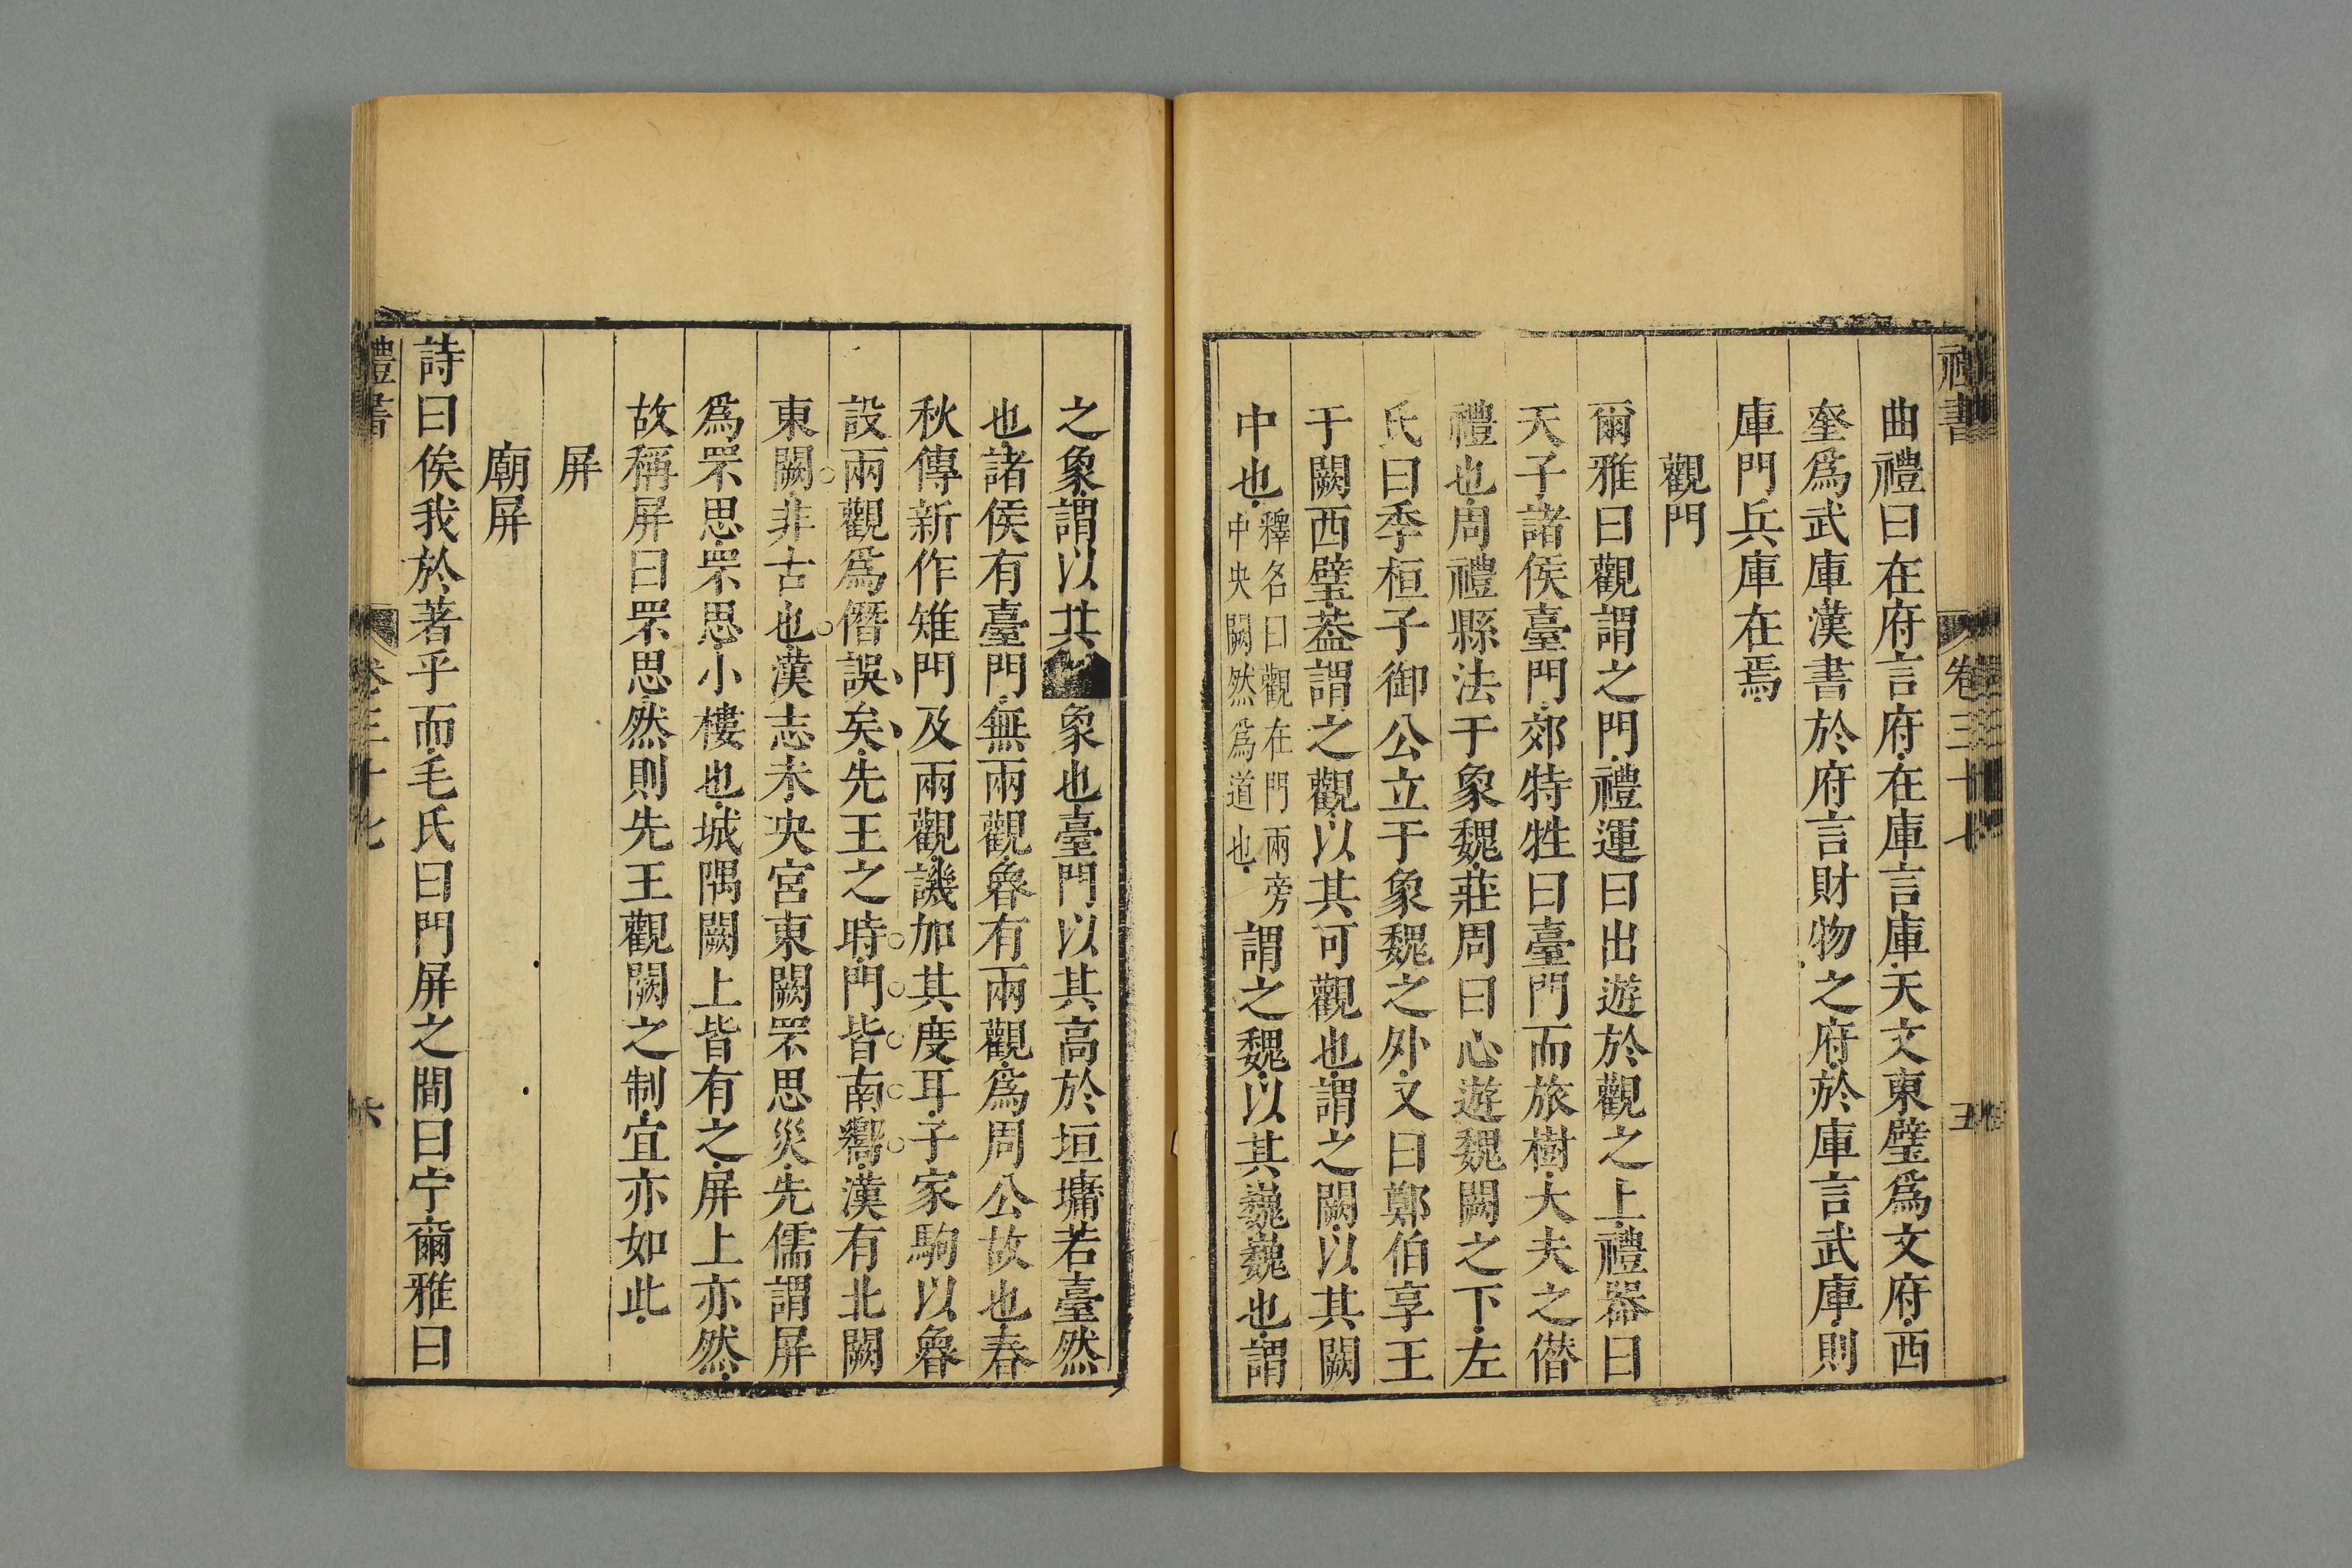 禮書 卷三十七 五
曲禮曰在府言府在庫言庫天文東壁爲文府西
奎爲武庫漢書於府言財物之府於庫言武庫則
庫門兵庫在焉
觀門
爾雅曰觀謂之門禮運曰出遊於觀之上禮器曰
天子諸侯臺門郊特牲曰臺門而旅樹大夫之僣
禮也周禮縣法于象魏莊周曰心遊魏闕之下左
氏曰季桓子御公立于象魏之外又曰鄭伯享王
于闕西璧葢謂之觀以其可觀也謂之闕以其闕
中也釋名曰觀在門兩旁中央闕然爲道也謂之魏以其巍巍也謂
之象謂以其象也臺門以其高於垣墉若臺然
也諸侯有臺門無兩觀魯有兩觀爲周公故也春
秋傳新作雉門及兩觀譏加其度耳子家駒以魯
設兩觀爲僭誤矣先王之時門皆南嚮漢有北闕
東闕非古也漢志未央宮東闕罘思災先儒謂屏
爲罘思罘思小樓也城隅闕上皆有之屏上亦然
故稱屏曰罘思然則先王觀闕之制宜亦如此
屏
廟屏
詩曰俟我於著乎而毛氏曰門屏之間曰宁爾雅曰
禮書 卷三十七 六